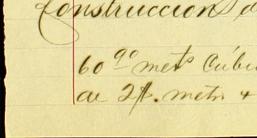 Construccion d
60 90 mets Cúbi
de 2f. metri +